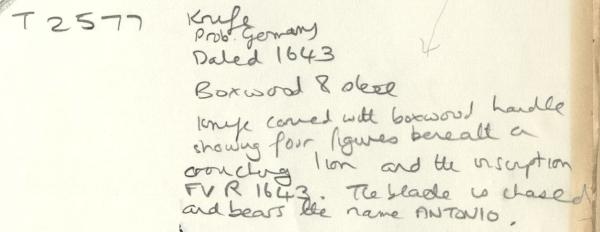 T 2577 Knife
Prob. Germany
Dated 1643
Boxwood & steel
Knife carved with boxwood handle
showing four figures beneath a
crouching lion and the inscription
FV R 1643. The blade is chased
and bears the name ANTONIO.